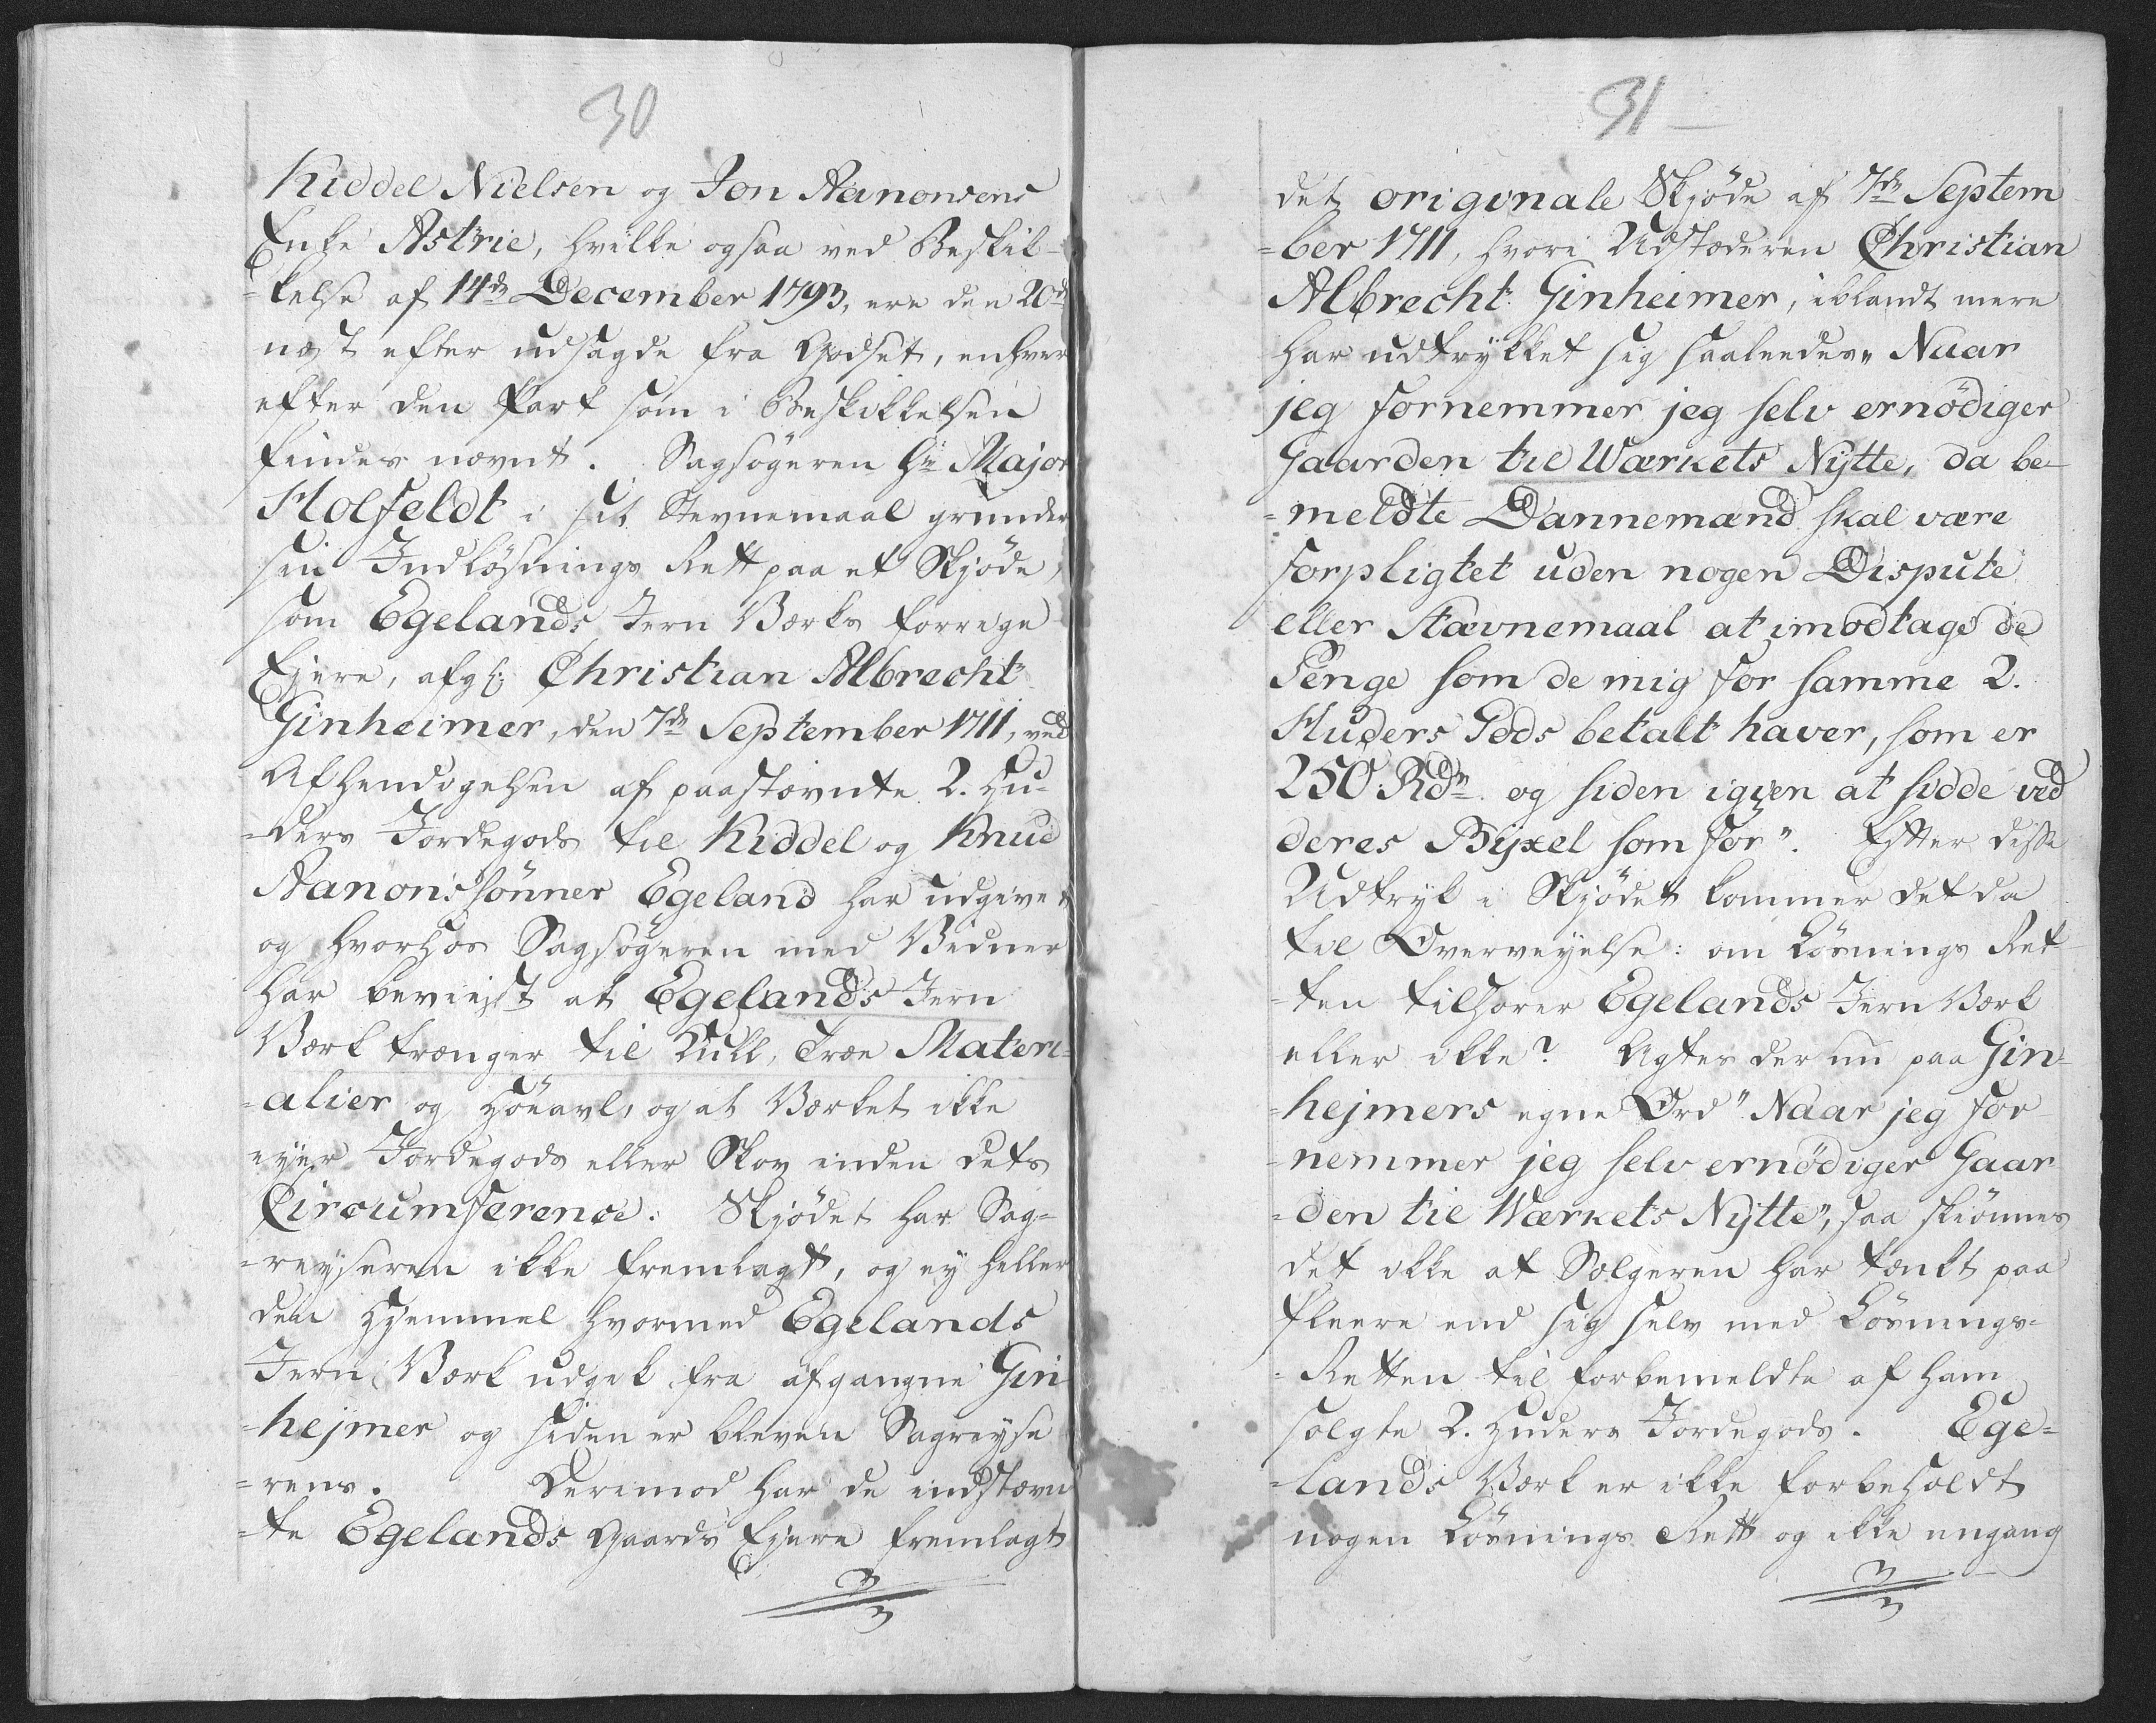 30
Kiddel Nielsen og Jon Aanonsens
Enke Astrie, hvilke ogsaa ved Beskik-
=kelse af 14de December 1793, ere den 20de
næst efter udsagde fra Godset, enhver
efter den Part som i Beskikkelsen
findes nævnt. Sagsögeren Hr Major
Holfeldt i sit Stevnemaal grunder
sin Indlösnings Rett paa et Skjöde,
som Egelands Jern Værks forrige
Ejere, afg: Christian Albrecht
Ginheimer, den 7de September 1711, ved
Afhendigelsen af paastævnte 2. Hu-
=ders Jordegods til Kiddel og Knud
Aanonssönner Egeland har udgivet
og hvorhos Sagsögeren med Vidner
har beviist at Egelands Jern
Værk trænger til Kull, Træe Materi=
=alier og Höeavl, og at Værket ikke
eyer Jordegods eller Skov inden dets
Circumference. Skjödet har Sag=
=reyseren ikke fremlagt, og ey heller
den Hjemmel hvormed Egelands
Jern Værk udgik fra afgangne Gin
=hejmer og siden er bleven Sagreyse
=rens. Derimod har de indstævn
=te Egelands Gaards Ejere fremlagt
31
det originale Skjöde af 7de Septem
=ber 1711, hvori Udstæderen Christian
Albrecht Ginheimer, iblandt mere
har udtrykket sig saaleedes„ Naar
jeg fornemmer jeg selv ernödiger
Gaarden til Wærkets Nytte, da be-
=meldte Dannemænd skal være
forpligtet uden nogen Dispute
eller Stævnemaal at imodtage de
Penge som de mig for samme 2.
Huders Gods betalt haver, som er
250 Rdr. og siden igien at sidde ved
deres Byxel som för". Efter disse
Udtryk i Skjödet kommer det da
til Overveyelse: om Lösnings Ret-
=ten tilhörer Egelands Jern Værk
eller ikke? Agtes der nu paa Gin=
=hejmers egne Ord "Naar jeg for
=nemmer jeg selv ernödiger Gaar
=den til Wærkets Nytte", saa skiönnes
det ikke at Sælgeren har tænkt paa
fleere end sig selv med Lösnings=
=Retten til forbemeldte af ham
solgte 2. Huders Jordegods. Ege=
=lands Værk er ikke forbeholdt
nogen Lösnings Rett og ikke engang